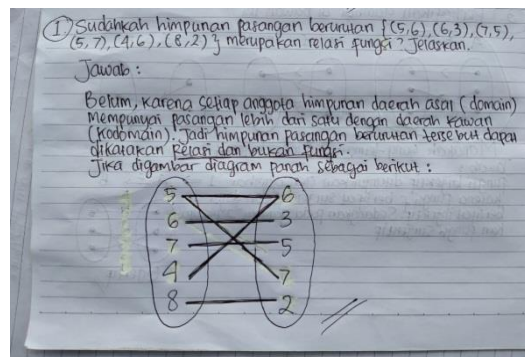 ① Sudahkah himpunan pasangan berurutan {(5,6), (6,3), (7,5),
(5,7), (4,6), (8,2)} merupakan relasi fungsi? Jelaskan.
Jawab :
Belum, karena setiap anggota himpunan daerah asal (domain)
mempunyai pasangan lebih dari satu dengan daerah kawan
(kodomain). Jadi himpunan pasangan berurutan tersebut dapat
dikatakan Relasi dan bukan fungsi.
Jika digambar diagram panah sebagai berikut :
5 6
6 3
7 5
4 7
8 2